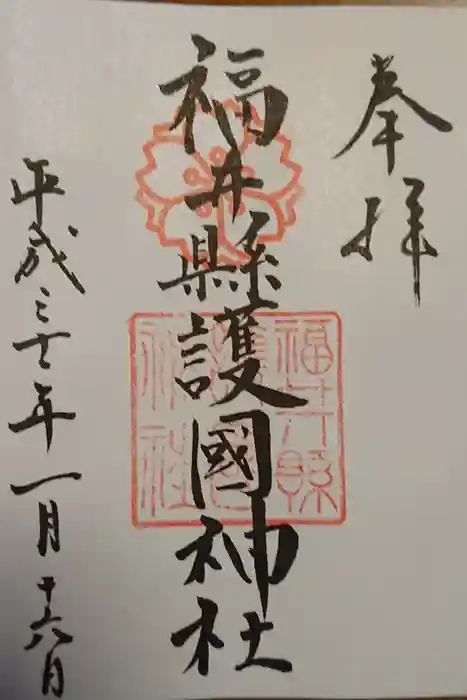 奉拝
福井縣護國神社
福井縣護國神社
平成三十年一月十六日